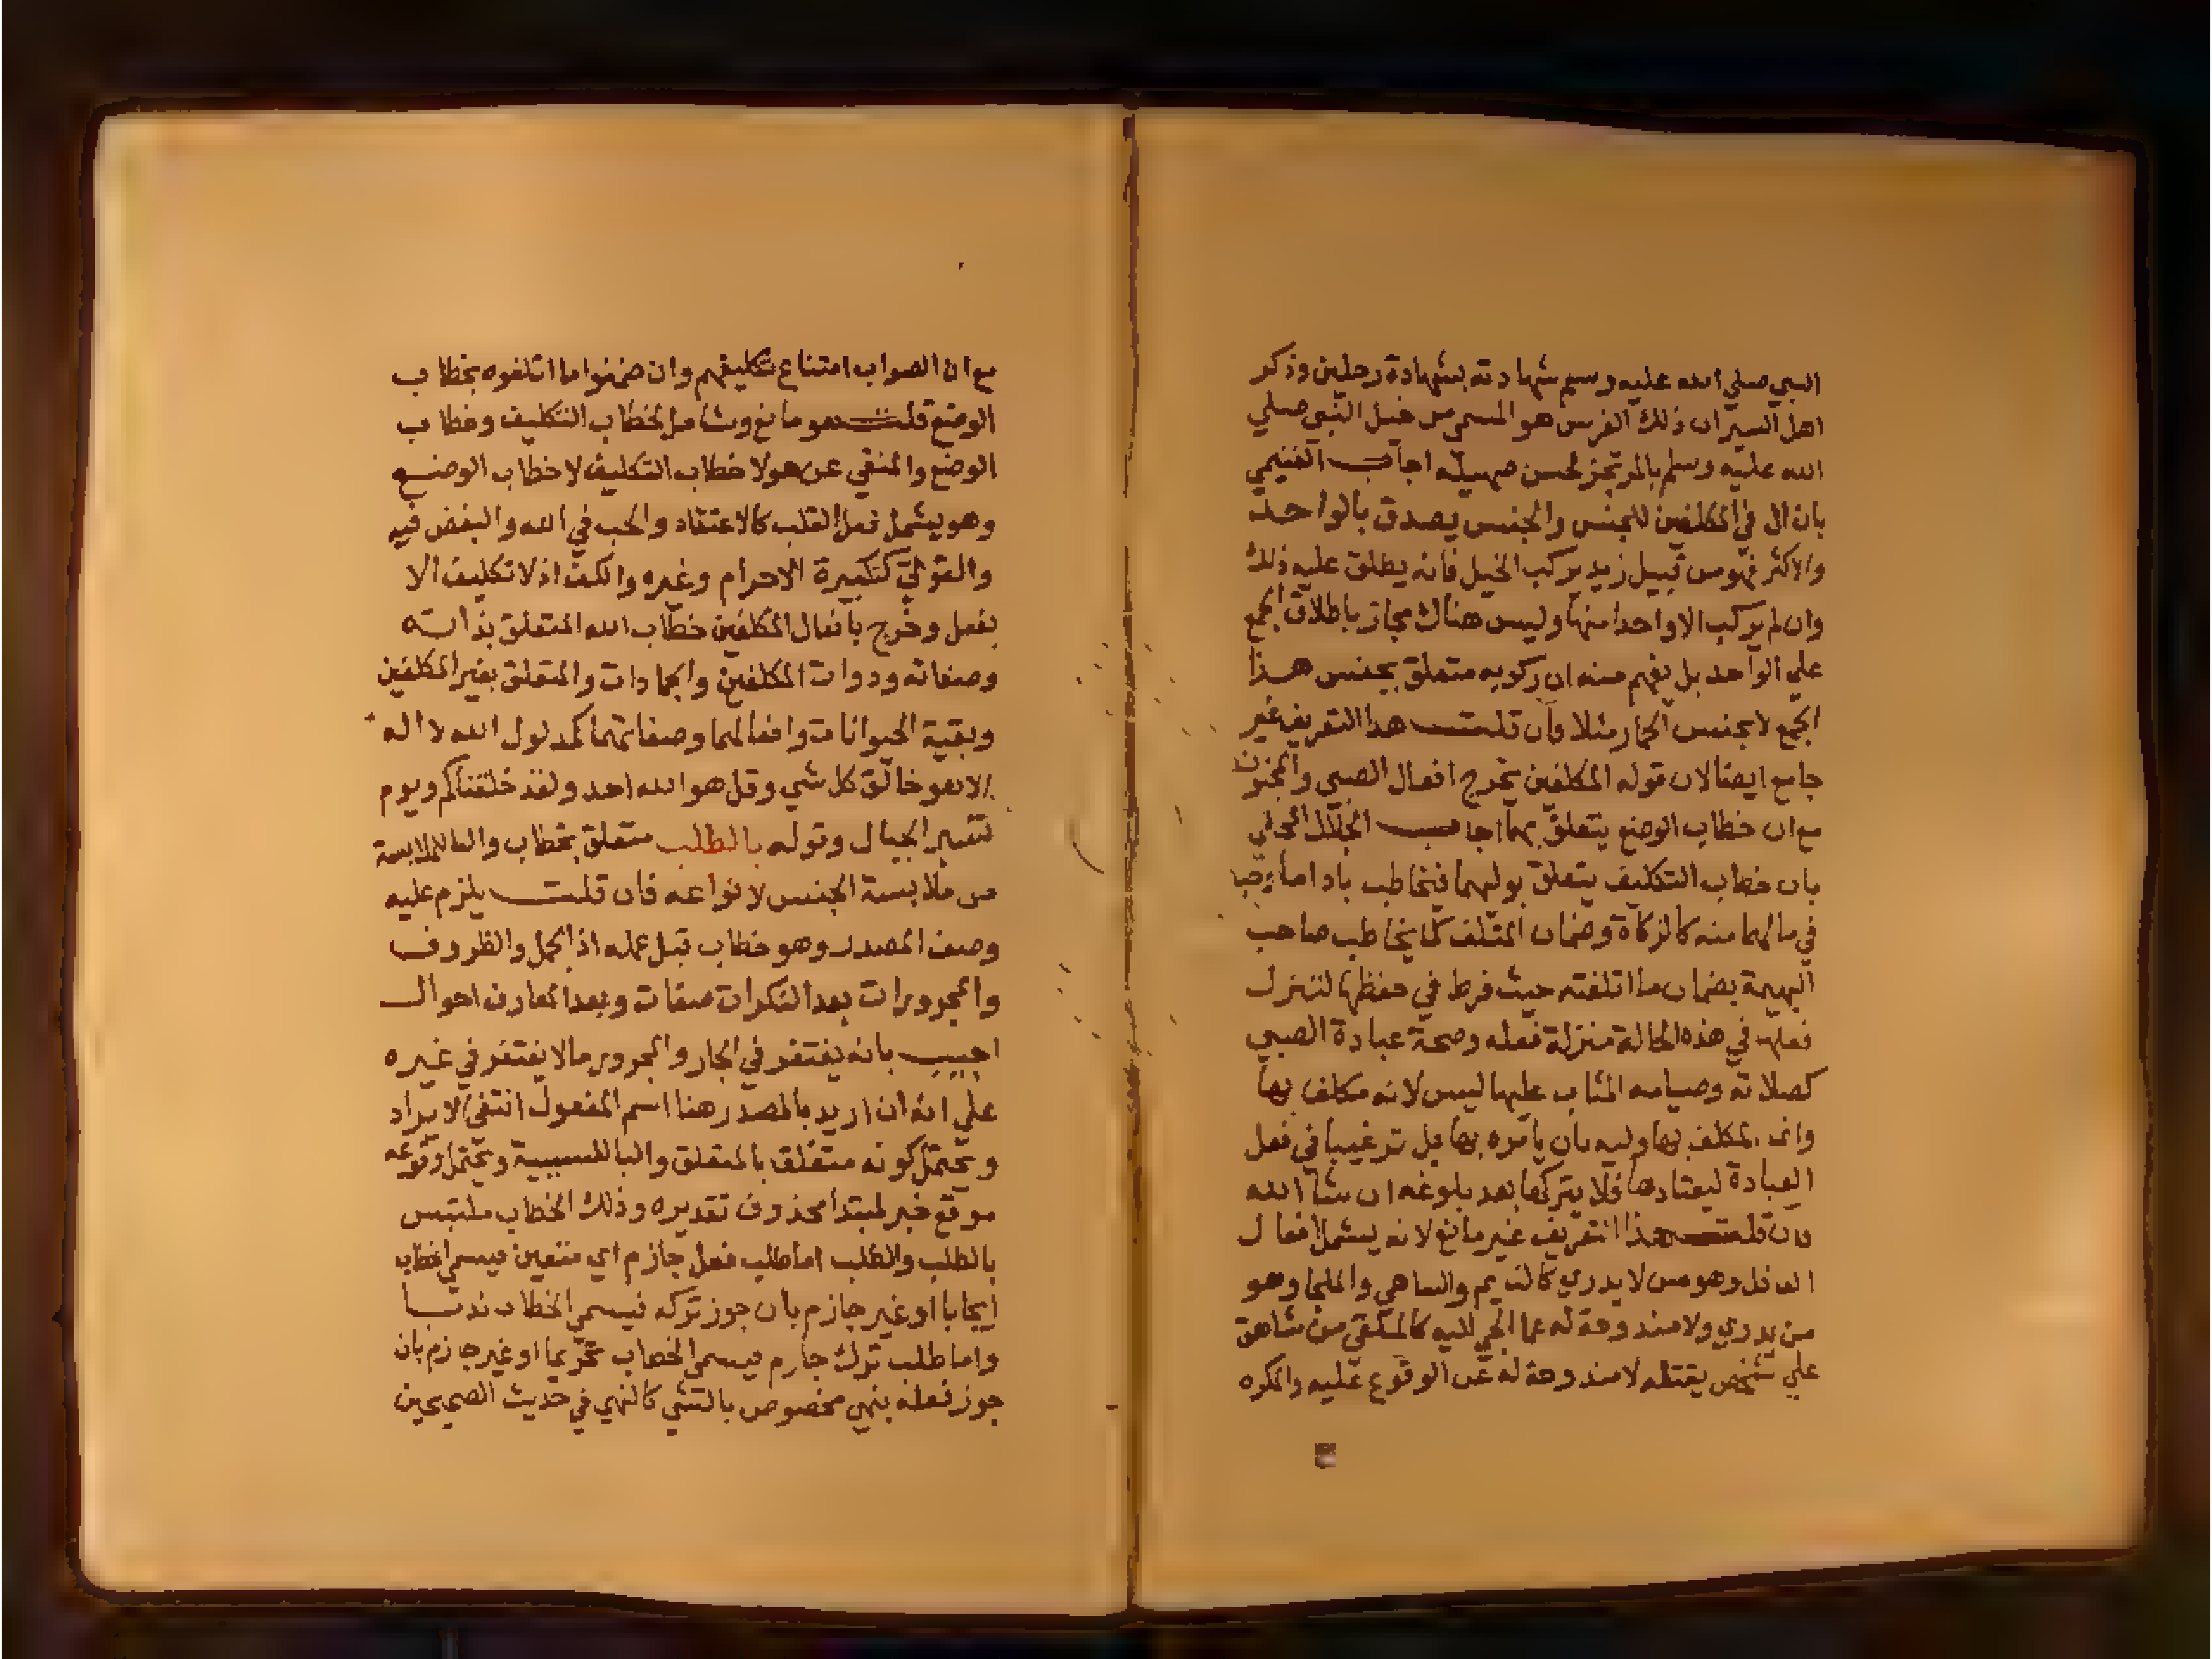 النبي صلي الله عليه وسلم شهادته بشهادة رجلين وذكر
اهل السير ان ذلك الفرس هو المسمي من خيل النبي صلي
الله عليه وسلم بالمرتجز لحسن صهيله اجاب الغنيمي
بان ال في المكلفين للجنس والجنس يصدق بالواحد
والاكثر فهو من قبيل زيد يركب الخيل فانه يطلق عليه ذلك
وان لم يركب الا واحدا منها وليس هناك مجاز باطلاق الجمع
علي الواحد بل يفهم منه ان ركوبه متعلق بجنس هذا
الجمع لا بجنس الحمار مثلا فان قلت هذا التعريف غير
جامع ايضا لان قوله المكلفين يخرج افعال الصبي والمجنون
مع ان خطاب الوضع يتعلق بهما اجاب الجلال المحلي
بان خطاب التكليف يتعلق بوليهما فيخاطب باداما وجب
في مالهما منه كالزكاة وضمان المتلف كما يخاطب صاحب
البهيمة بضمان ما اتلفته حيث فرط في حفظها لتنزل
فعلها في هذه الحالة منزلة فعله وصحة عبادة الصبي
كصلاته وصيامه المثاب عليها ليس لانه مكلف بها
وانما المكلف بها وليه بان يامره بها بل ترغيبا في فعل
العبادة ليعتادها فلا يتركها بعد بلوغه ان شا الله
فان قلت هذا التعريف غير مانع لانه يشمل افعال
الغافل وهو من لا يدري كالنايم والساهي والملجا وهو
من يدري ولا مندوحة له عما الجي اليه كالملقي من شاهق
علي شخص يقتله لا مندوحة له عن الوقوع عليه والمكره
مع ان الصواب امتناع تكليفهم وان ضمنوا ما اتلفوه بخطاب
الوضع قلت هو مانع وشامل لخطاب التكليف وخطاب
الوضع والمنفي عن هولا خطاب التكليف لا خطاب الوضع
وهو يشمل فعل القلب كالاعتقاد والحب في الله والبغض فيه
والقولي كتكبيرة الاحرام وغيره والكف اذ لا تكليف الا
بفعل وخرج بافعال المكلفين خطاب الله المتعلق بذاته
وصفاته وذوات المكلفين والجمادات والمتعلق بغير المكلفين
وبقية الحيوانات وافعالهما وصفاتهما كمدلول الله لا اله
الا هو خالق كل شي وقل هو الله احد ولقد خلقناكم ويوم
نسير الجبال وقوله بالطلب متعلق بخطاب والبا للملابسة
من ملابسة الجنس لانواعه فان قلت يلزم عليه
وصف المصدر وهو خطاب قبل عمله اذ الجمل والظروف
والمجرورات بعد النكرات صفات وبعد المعارف احوال
اجيب بانه يغتفر في الجار والمجرور ما لا يغتفر في غيره
علي انه ان اريد بالمصدر هنا اسم المفعول انتفي الايراد
ويحتمل كونه متعلق بالمتعلق والبا للسببية ويحتمل وقوعه
موقع خبر لمبتدا محذوف تقديره وذلك الخطاب ملتبس
بالطلب والطلب اما طلب فعل جازم اي متعين فيسمي الخطاب
ايجابا او غير جازم بان جوز تركه فيسمي الخطاب ندبا
واما طلب ترك جازم فيسمي الخطاب تحريما او غير جازم بان
جوز فعله بنهي مخصوص بالشي كالنهي في حديث الصحيحين